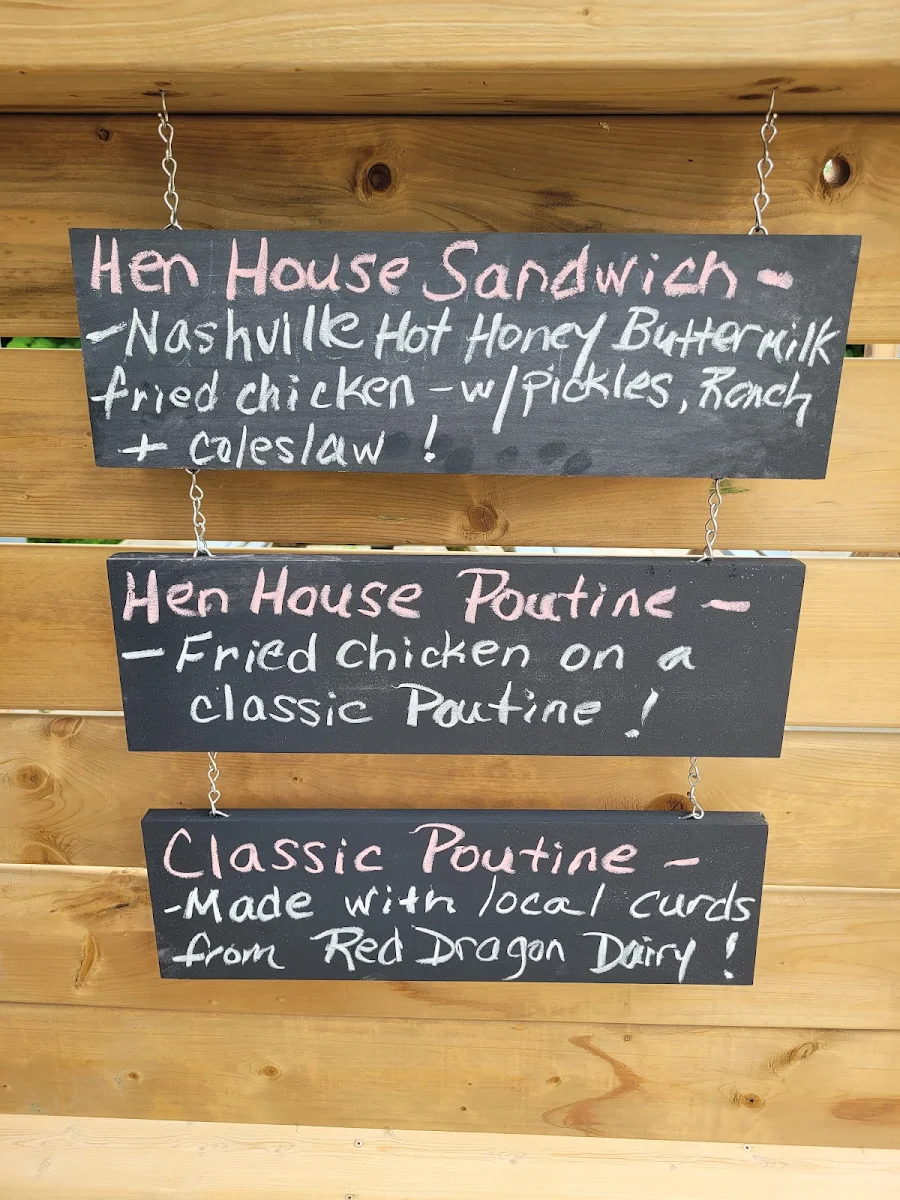 Hen House Sandwich -
- Nashville Hot Honey Buttermilk
fried chicken - w/ pickles, Ranch
+ coleslaw !
Hen House Poutine -
- Fried chicken on a
classic Poutine !
Classic Poutine -
- Made with local curds
from Red Dragon Dairy !